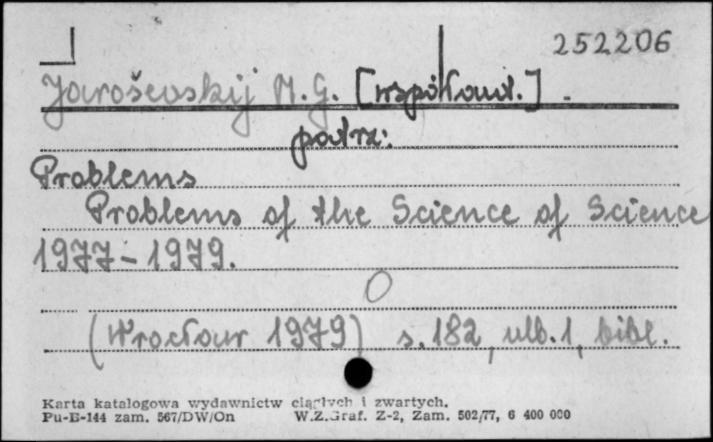 252206
Jaroševskij M. G. [współaut.].
patrz:
Problems
Problems of the Science of Science
1977-1979.
(Wrocław 1979) s. 182, nlb. 1, bibl.
Karta katalogowa wydawnictw ciągłych i zwartych.
Pu-B-144 zam. 567/DW/On W.Z.Graf. Z-2, Zam. 502/77, 6 400 000